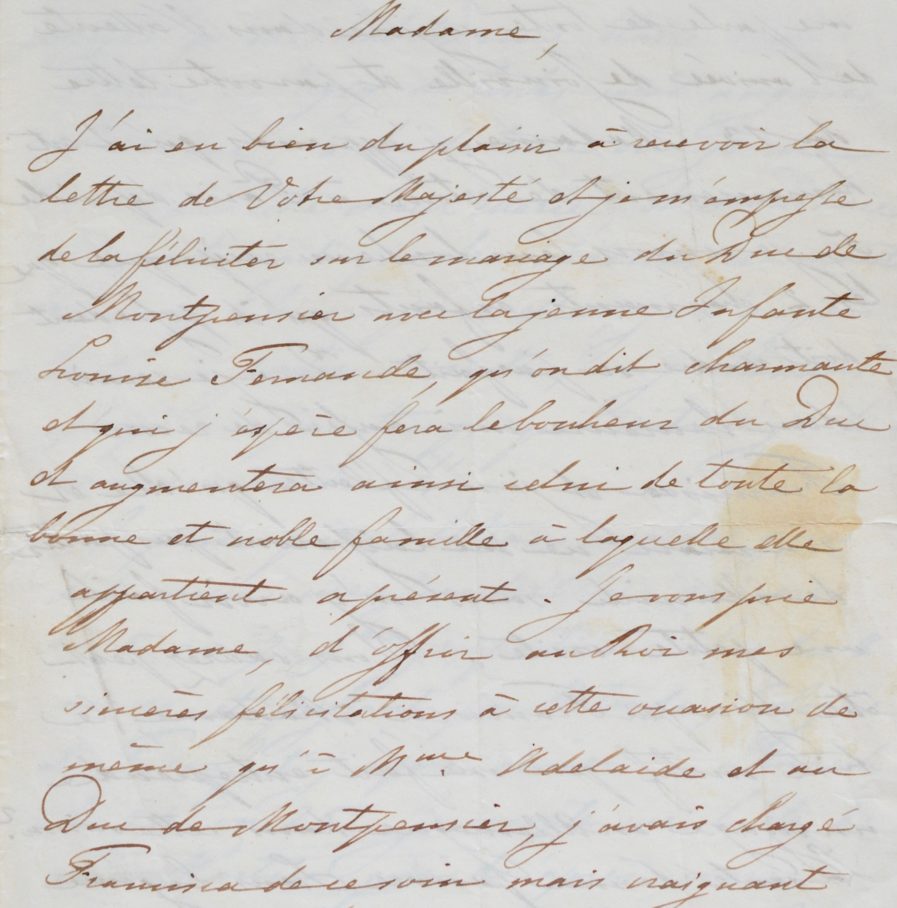 Madame,
J'ai eu bien du plaisir à recevoir la
lettre de Votre Majesté et je m'empresse
de la féliciter sur le mariage du Duc de
Montpensier avec la jeune Infante
Louise Fernande, qu'on dit charmante
et qui j'espère fera le bonheur du Duc
et augmentera ainsi celui de toute la
bonne et noble famille à laquelle elle
appartient a présent. Je vous prie
Madame, d'offrir au Roi mes
sincères félicitations à cette occasion de
même qu'à Mme. Adelaide et au
Duc de Montpensier, j'avais chargé
Francisca de ce soin mais craignant